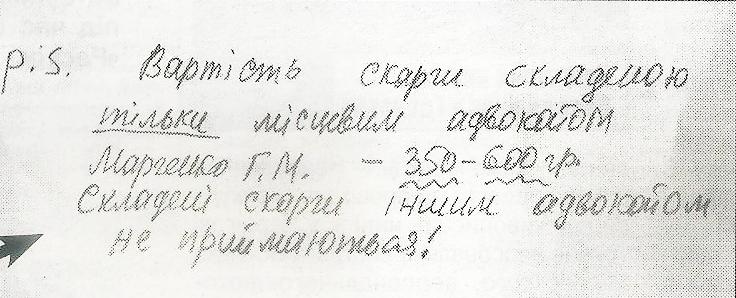 P.S. Вартість скарги складеною
тільки місцевим адвокатом
Марченко Г.М. – 350-600 гр.
Складені скарги іншим адвокатом
не приймаються!